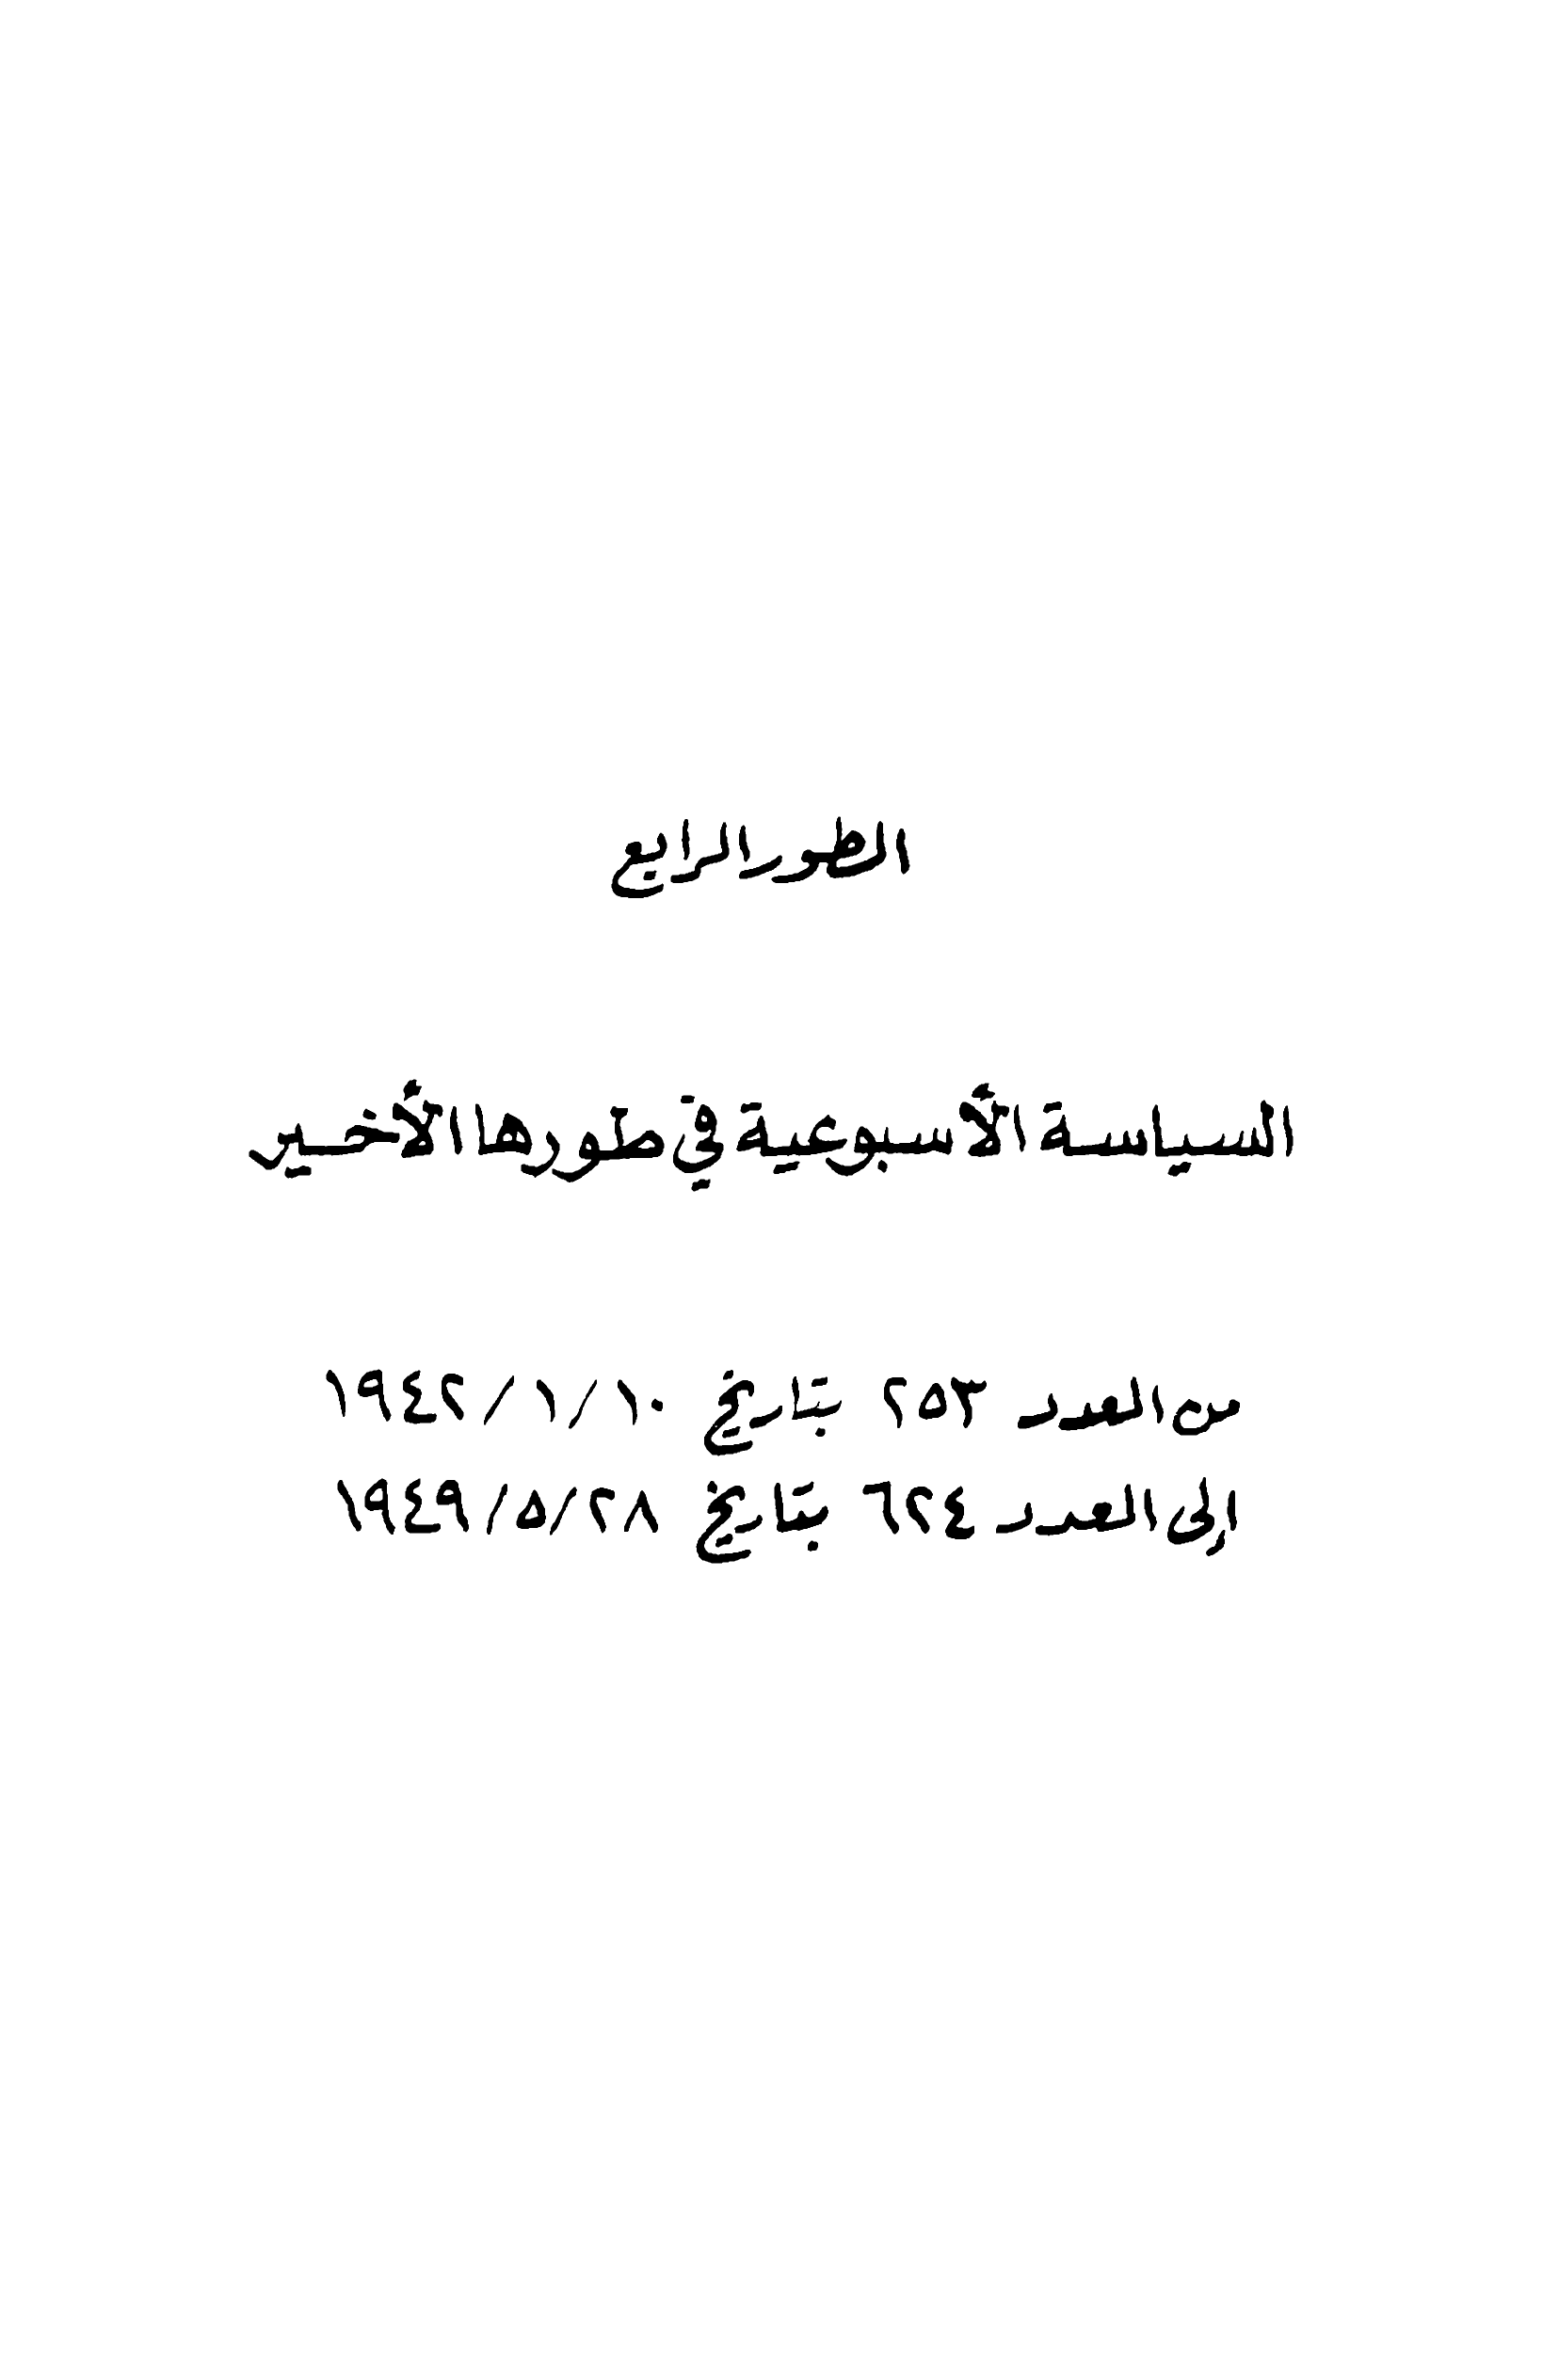 الطور الرابع
السياسة الأسبوعية في طورها الأخير
من العدد ٢٥٣ بتاريخ ١٩٤٢/١/١٠
إلى العدد ٦٢٤ بتاريخ ١٩٤٩/٥/٢٨